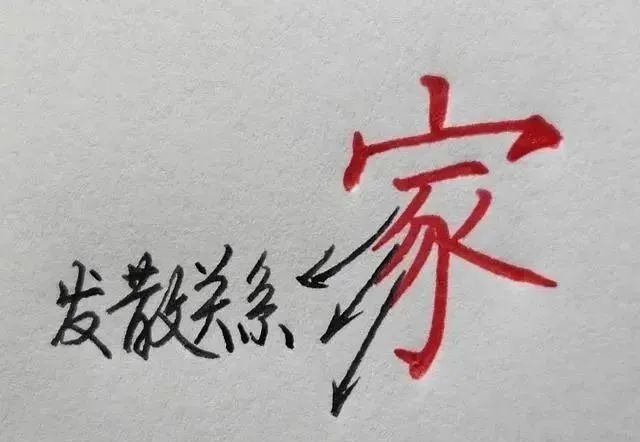 家
发散关系